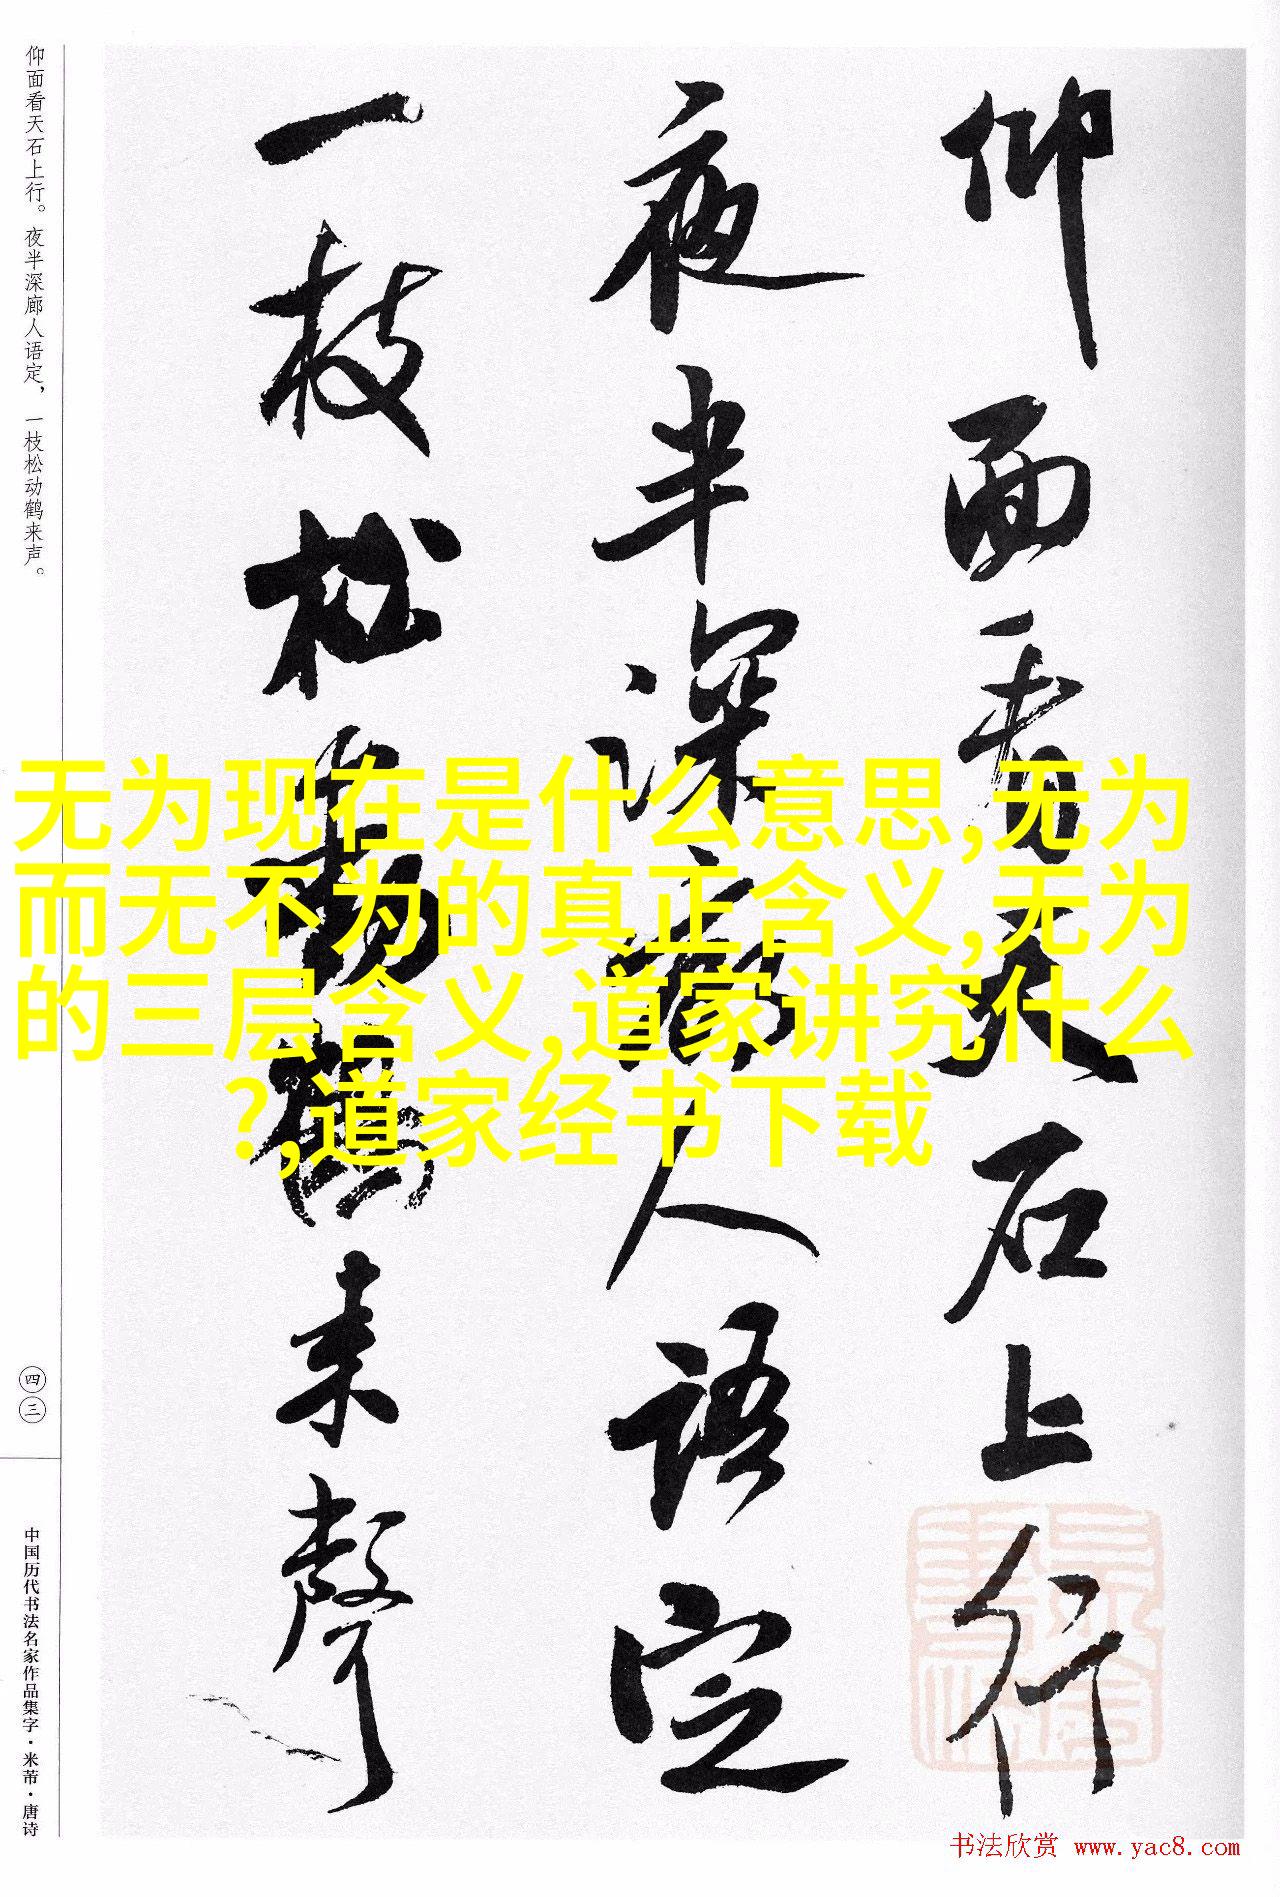 仰面看天石上行
夜半深廊人语定
一枝松動鶴来聲
仰面看天石上行。夜半深廊人语定，一枝松动鹤来声。
四三
中国历代书法名家作品集字·米芾·唐诗
无为现在是什么意思,无为
而无不为的真正含义,无为
的三层含义,道家讲究什么
?,道家经书下载
书法欣赏 www.yac8.com